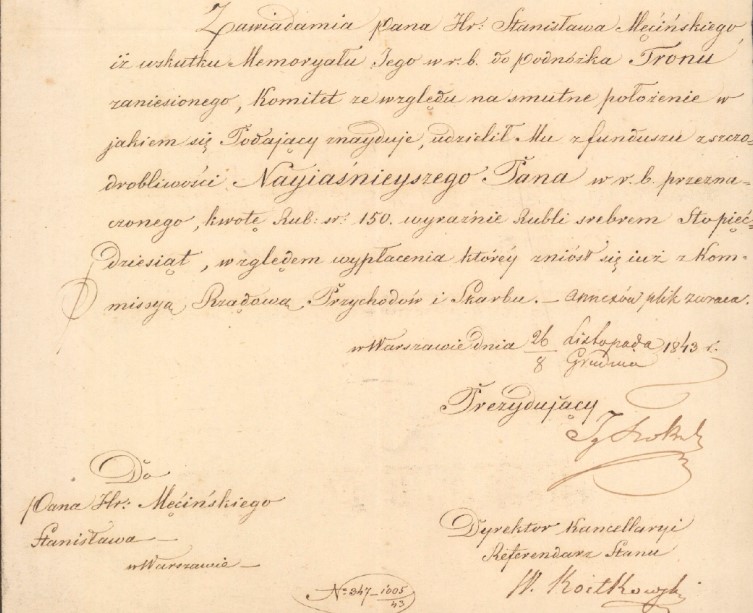 Zawiadamia Pana Hr: Stanisława Męcińskiego
iż wskutku Memoryału Jego w r. b. do podnóżka Tronu
zaniesionego, Komitet ze względu na smutne położenie w
jakiem się Podający znayduje, udzielił Mu z funduszu z szczo-
drobliwości Nayiaśnieyszego Pana w r. b. przezna-
czonego, kwotę Rub: sr: 150. wyraźnie Rubli srebrem Stopięć-
dziesiąt, względem wypłacenia któréy zniósł się iuż z Kom-
missyą Rządową Przychodów i Skarbu. — annexów plik zwraca.
w Warszawie dnia 26/8 Listopada/Grudnia 1843 r.
Prezydujący
Do
Pana Hr: Męcińskiego
Stanisława —
w Warszawie —
Dyrektor Kancellaryi
Referendarz Stanu
W.
No 847 — 1005/43